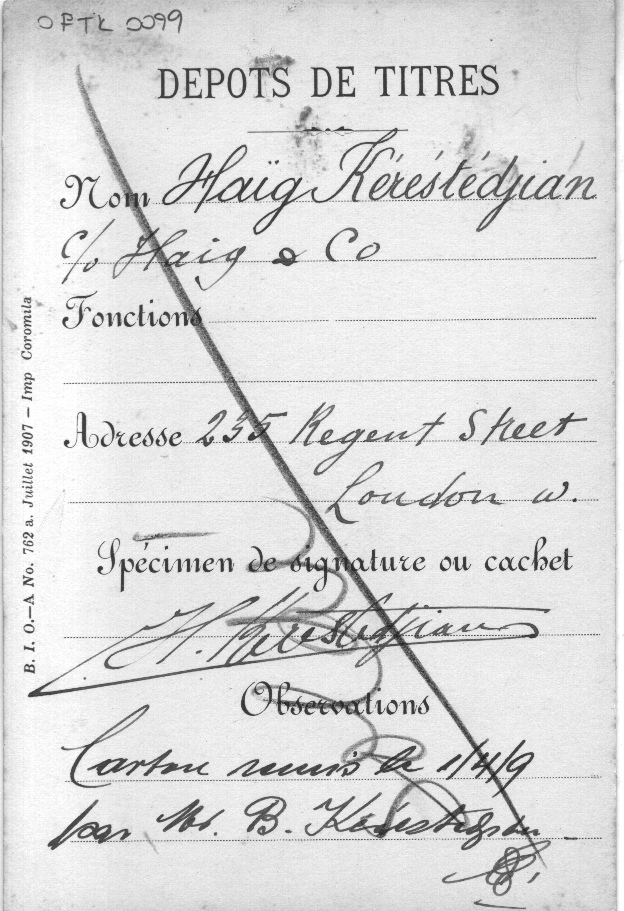 OFTK 0099
DEPOTS DE TITRES
Nom Haïg Kéréstédjian
c/o Haig & Co
Fonctions
Adresse 235 Regent Street
London W.
Spécimen de signature ou cachet
H. Kérestédjian
Observations
Carton remis le 1/4/9
par Mr. B. Kéréstédjian
B. I. O.—A No. 762 a. Juillet 1907 — Imp Coromila